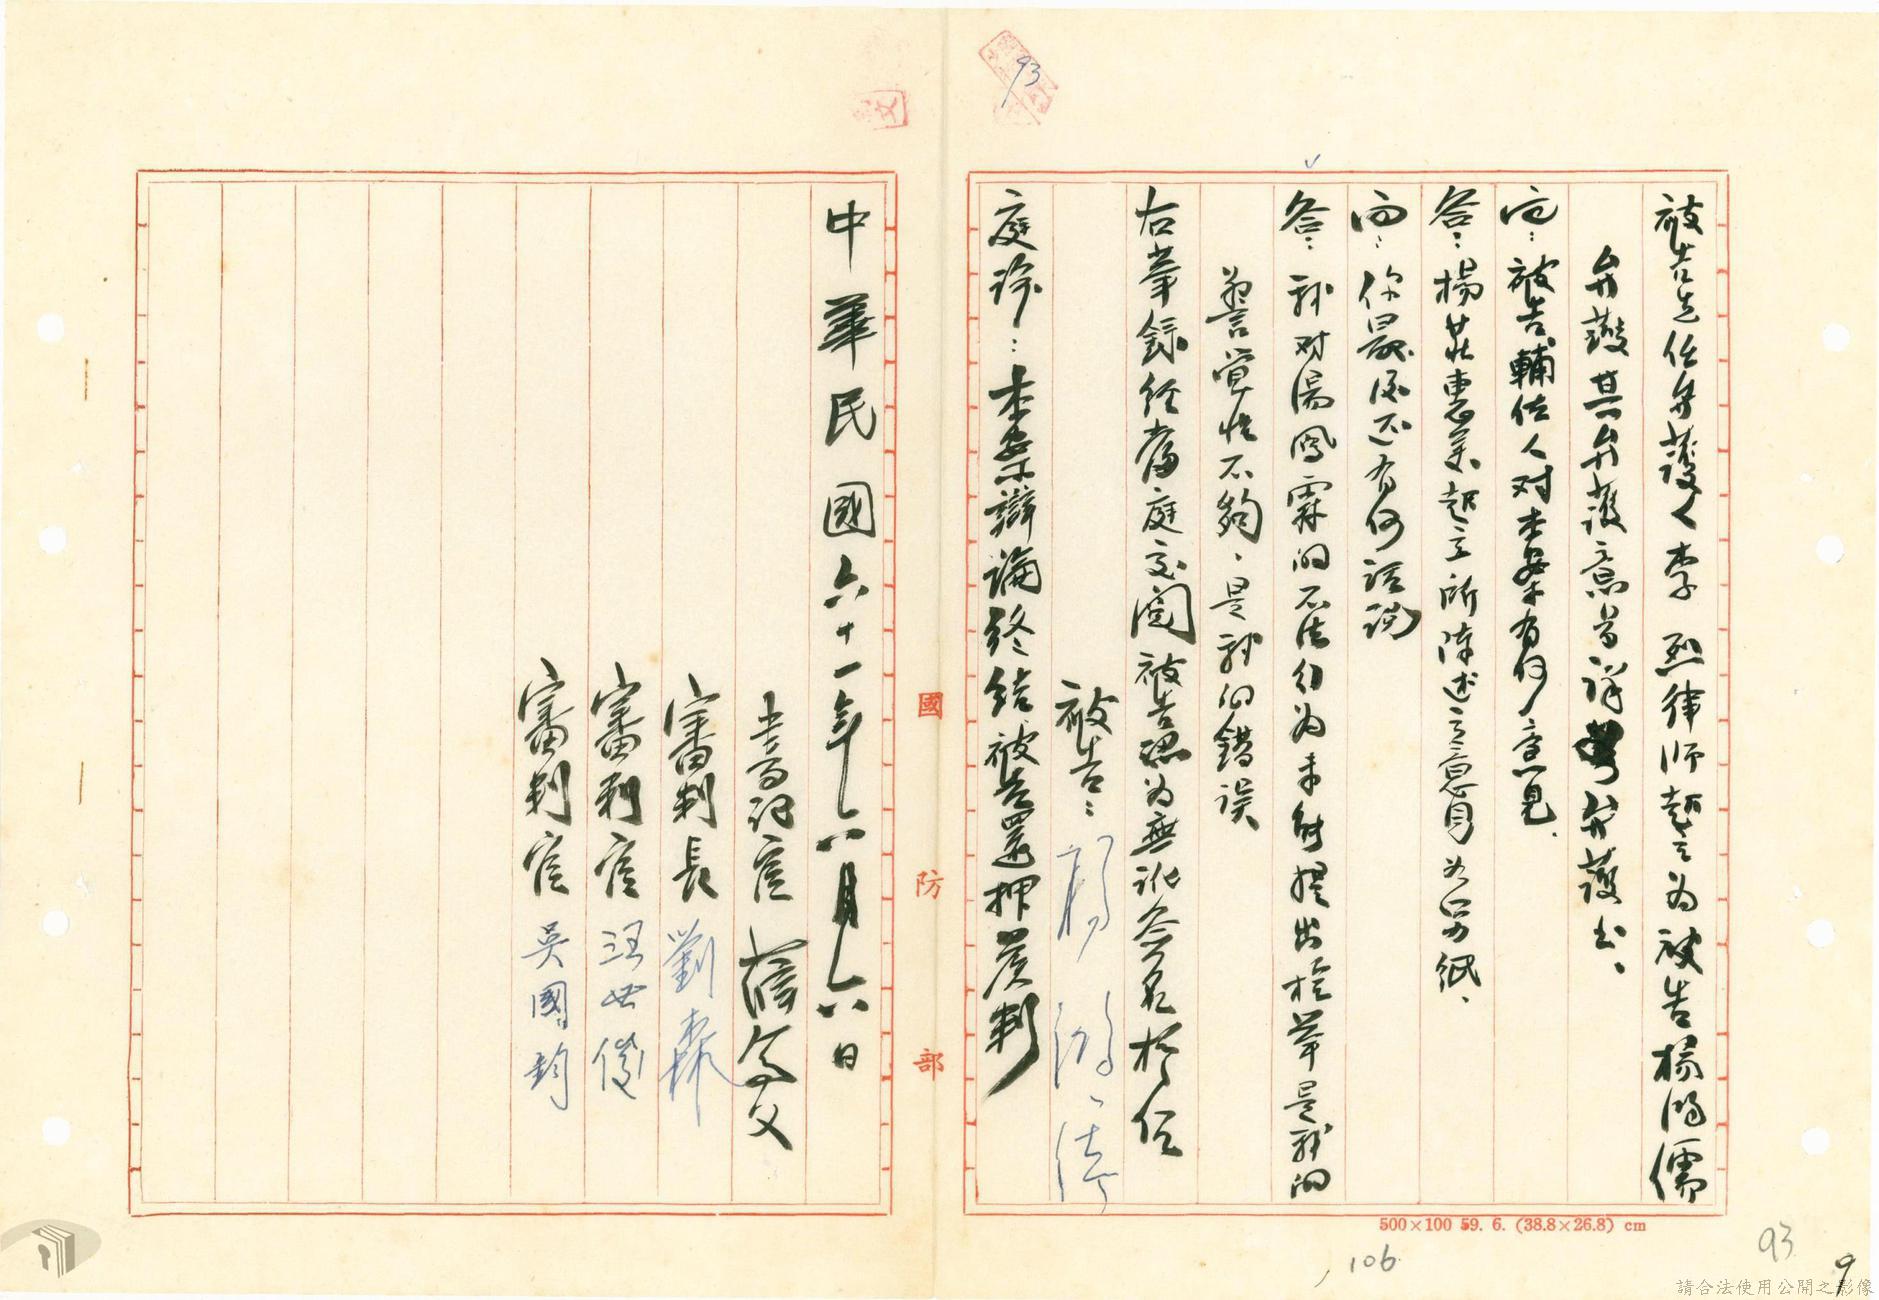 被告選任弁護人李烈律師起立為被告楊鴻儒
弁護其弁護意旨詳弁護書、
問：被告輔佐人对本案有何意見、
答：楊莊惠美起立所陳述之意旨如另紙、
問：你最后还有何話説
答：我对湯鳳霖的不法行为未能提出檢舉是我的
警覚性不夠、是我的錯误
右筆錄经當庭交閱被告認为無訛簽名於后
被告：楊鴻儒
庭諭：本案辯論終結被告還押候判
中華民國六十一年六月六日
書記官
審判長 劉森
審判官 汪世俊
審判官 吳國鈞
國防部
500×100 59. 6. (38.8×26.8) cm
93
106
93
9
請合法使用公開之影像